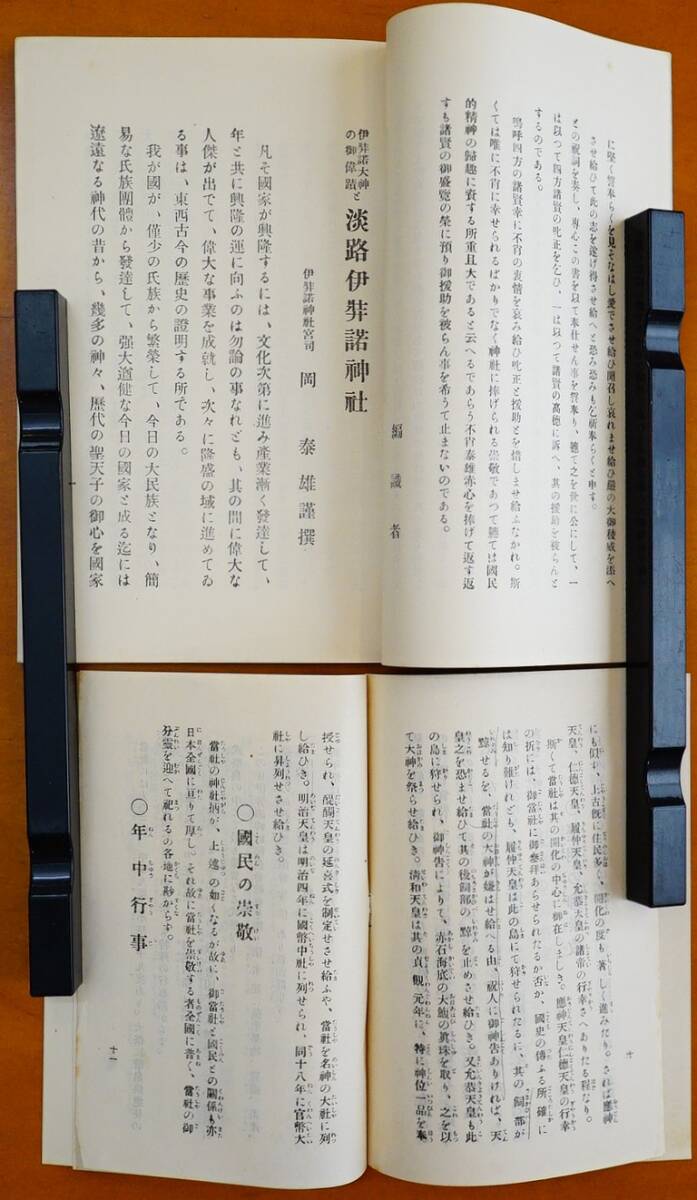 に堅く誓奉らくを見そなはし愛でさせ給ひ聞召し哀れませ給ひ嚴の大御稜威を添へ
させ給ひて此の志を遂げ得させ給へと恐み恐みも乞祈奉らくと申す。
との祝詞を奏し、專心この書を以て奉仕せん事を誓奉り、聽て之を世に公にして、一
は以つて四方諸賢の叱正を乞ひ、一は以つて諸賢の高德に訴へ、其の援助を被らんと
するのである。
嗚呼四方の諸賢幸に不肖の衷情を哀み給ひ叱正と援助とを惜しませ給ふなかれ。斯
くては唯に不肖に幸せられるばかりでなく神社に捧げられる崇敬であつて聽ては國民
的精神の歸趣に資する所重且大であると云へるであらう不肖泰雄赤心を捧げて返す返
すも諸賢の御盛覽の榮に預り御援助を被らん事を希うて止まないのである。
編識者
伊弉諾大神と
の御偉蹟
淡路伊弉諾神社
伊弉諾神社宮司 岡泰雄謹撰
凡そ國家が興隆するには、文化次第に進み產業漸く發達して、
年と共に興隆の運に向ふのは勿論の事なれども、其の間に偉大な
人傑が出でて、偉大な事業を成就し、次々に隆盛の域に進めてゐ
る事は、東西古今の歷史の證明する所である。
我が國が、僅少の氏族から繁榮して、今日の大民族となり、簡
易な氏族團體から發達して、强大遒健な今日の國家と成る迄には
遼遠なる神代の昔から、幾多の神々、歷代の聖天子の御心を國家
にも似ず、上古旣に住民多く、開化の度も著しく進みたり。されば應神
天皇、仁德天皇、履仲天皇、允恭天皇の諸帝の行幸さへありたる程なり。
斯くて當社は其の開化の中心に御在しましき。應神天皇仁德天皇の行幸
の折には、御當社に御參拜あらせられたるか否か、國史の傳ふる所確に
は知り難けれども、履仲天皇は此の島にて狩せられたるに、其の飼部が
黥せるを、當社の大神が嫌はせ給へる由、祝人に御神告ありければ、天
皇之を恐ませ給ひて其の後飼部の黥を止めさせ給ひき。又允恭天皇も此
の島に狩せられ、御神告によりて、赤石海底の大鮑の眞珠を取り、之を以
て大神を祭らせ給ひき。淸和天皇は其の貞觀元年に、特に神位一品を奉
十
授せられ、醍醐天皇の延喜式を制定せさせ給ふや、當社を名神の大社に列
し給ひき。明治天皇は明治四年に國幣中社に列せられ、同十八年に官幣大
社に昇列せさせ給ひき。
〇國民の崇敬
當社の神社柄が、上述の如くなるが故に、御當社と國民との關係も亦
日本全國に亘りて厚し。それ故に當社を崇敬する者全國に普く、當社の御
分靈を迎へて祀れるの各地に尠からず。
〇年中行事
十一